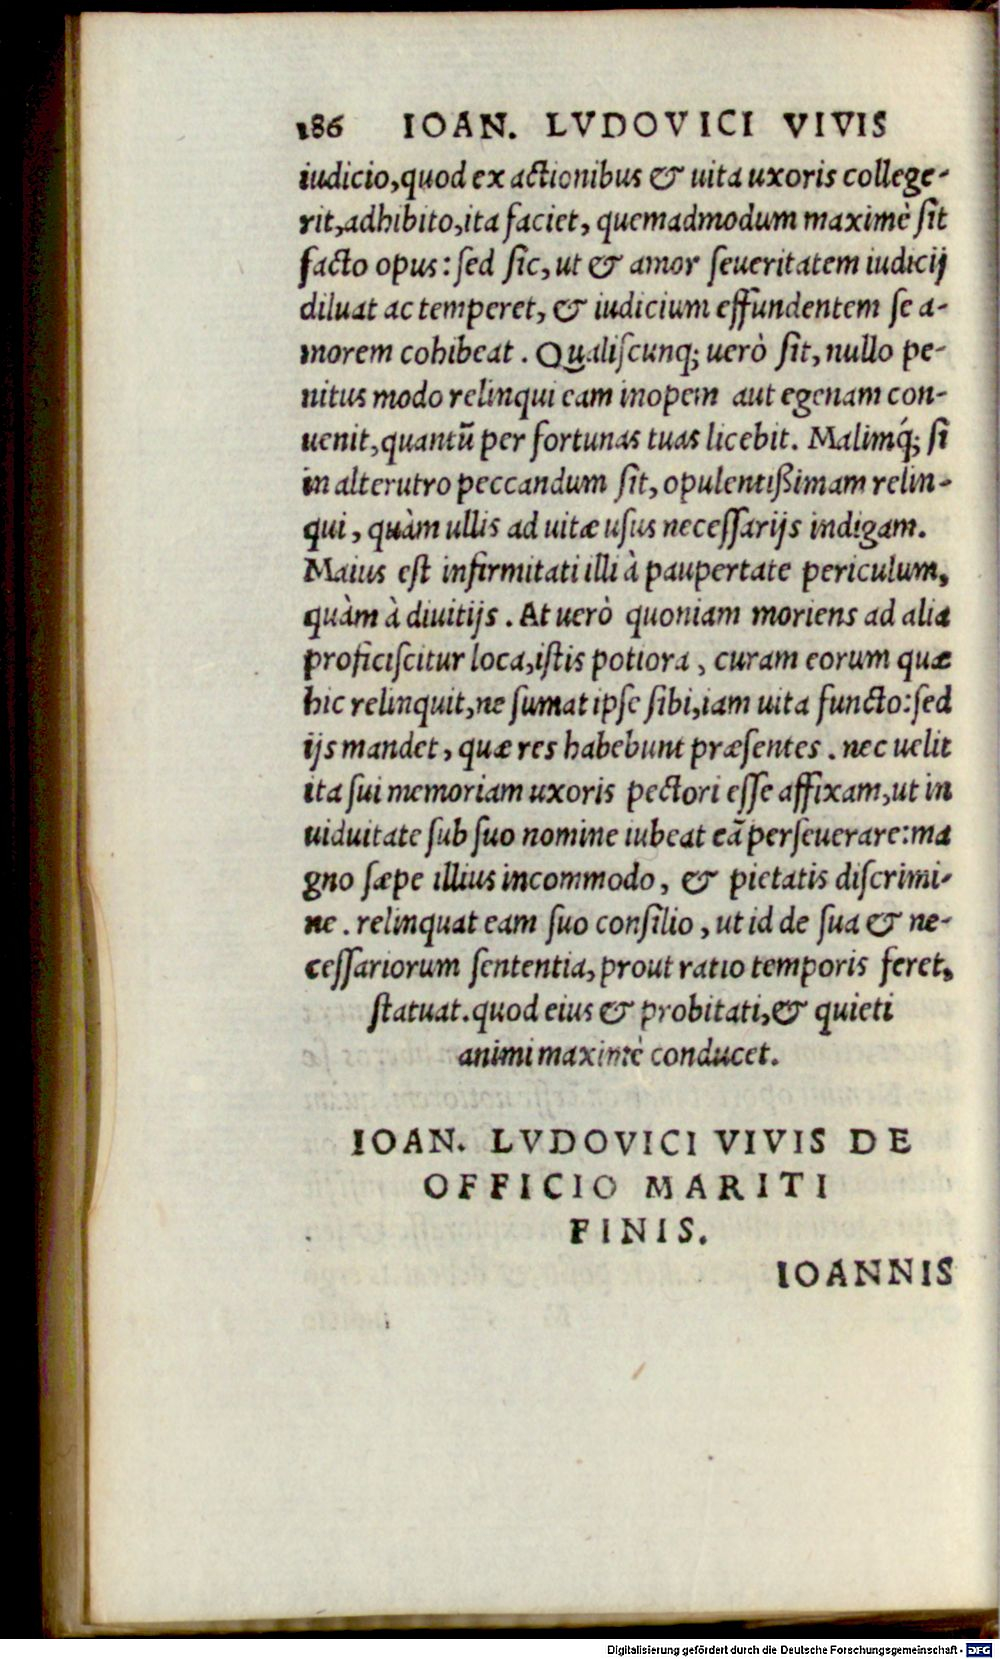 186 IOAN. LVDOVICI VIVIS
iudicio, quod ex actionibus & uita uxoris college-
rit, adhibito, ita faciet, quemadmodum maximè ſit
facto opus: ſed ſic, ut & amor ſeueritatem iudicij
diluat ac temperet, & iudicium effundentem ſe a-
morem cohibeat. Qualiſcunq; uerò ſit, nullo pe-
nitus modo relinqui eam inopem aut egenam con-
uenit, quantũ per fortunas tuas licebit. Malimq́; ſi
in alterutro peccandum ſit, opulentißimam relin-
qui, quàm ullis ad uitæ uſus neceſſarijs indigam.
Maius eſt infirmitati illi à paupertate periculum,
quàm à diuitijs. At uerò quoniam moriens ad alia
proficiſcitur loca, iſtis potiora, curam eorum quæ
hic relinquit, ne ſumat ipſe ſibi, iam uita functo: ſed
ijs mandet, quæ res habebunt præſentes. nec uelit
ita ſui memoriam uxoris pectori eſſe affixam, ut in
uiduitate ſub ſuo nomine iubeat eã perſeuerare: ma
gno ſæpe illius incommodo, & pietatis diſcrimi-
ne. relinquat eam ſuo conſilio, ut id de ſua & ne-
ceſſariorum ſententia, prout ratio temporis feret,
ſtatuat. quod eius & probitati, & quieti
animi maximè conducet.
IOAN. LVDOVICI VIVIS DE
OFFICIO MARITI
FINIS.
IOANNIS
Digitalisierung gefördert durch die Deutsche Forschungsgemeinschaft - DFG